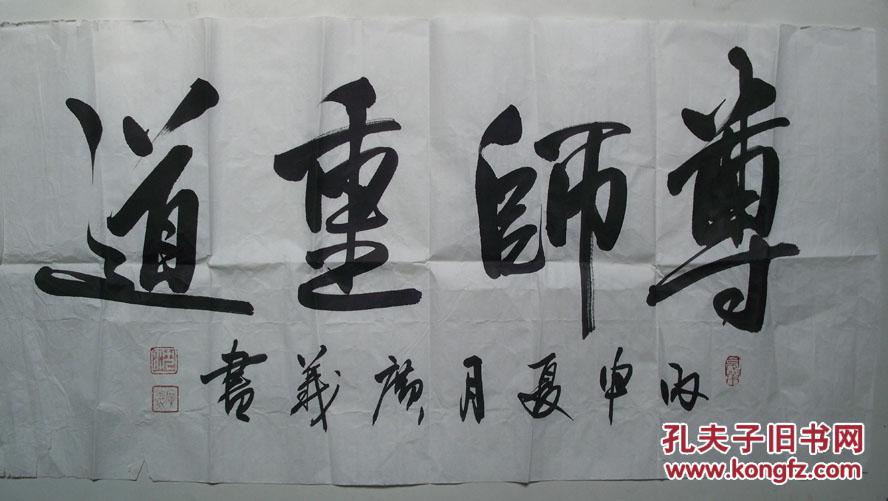 尊師重道
丙申夏月廣義書
孔夫子旧书网
www.kongfz.com